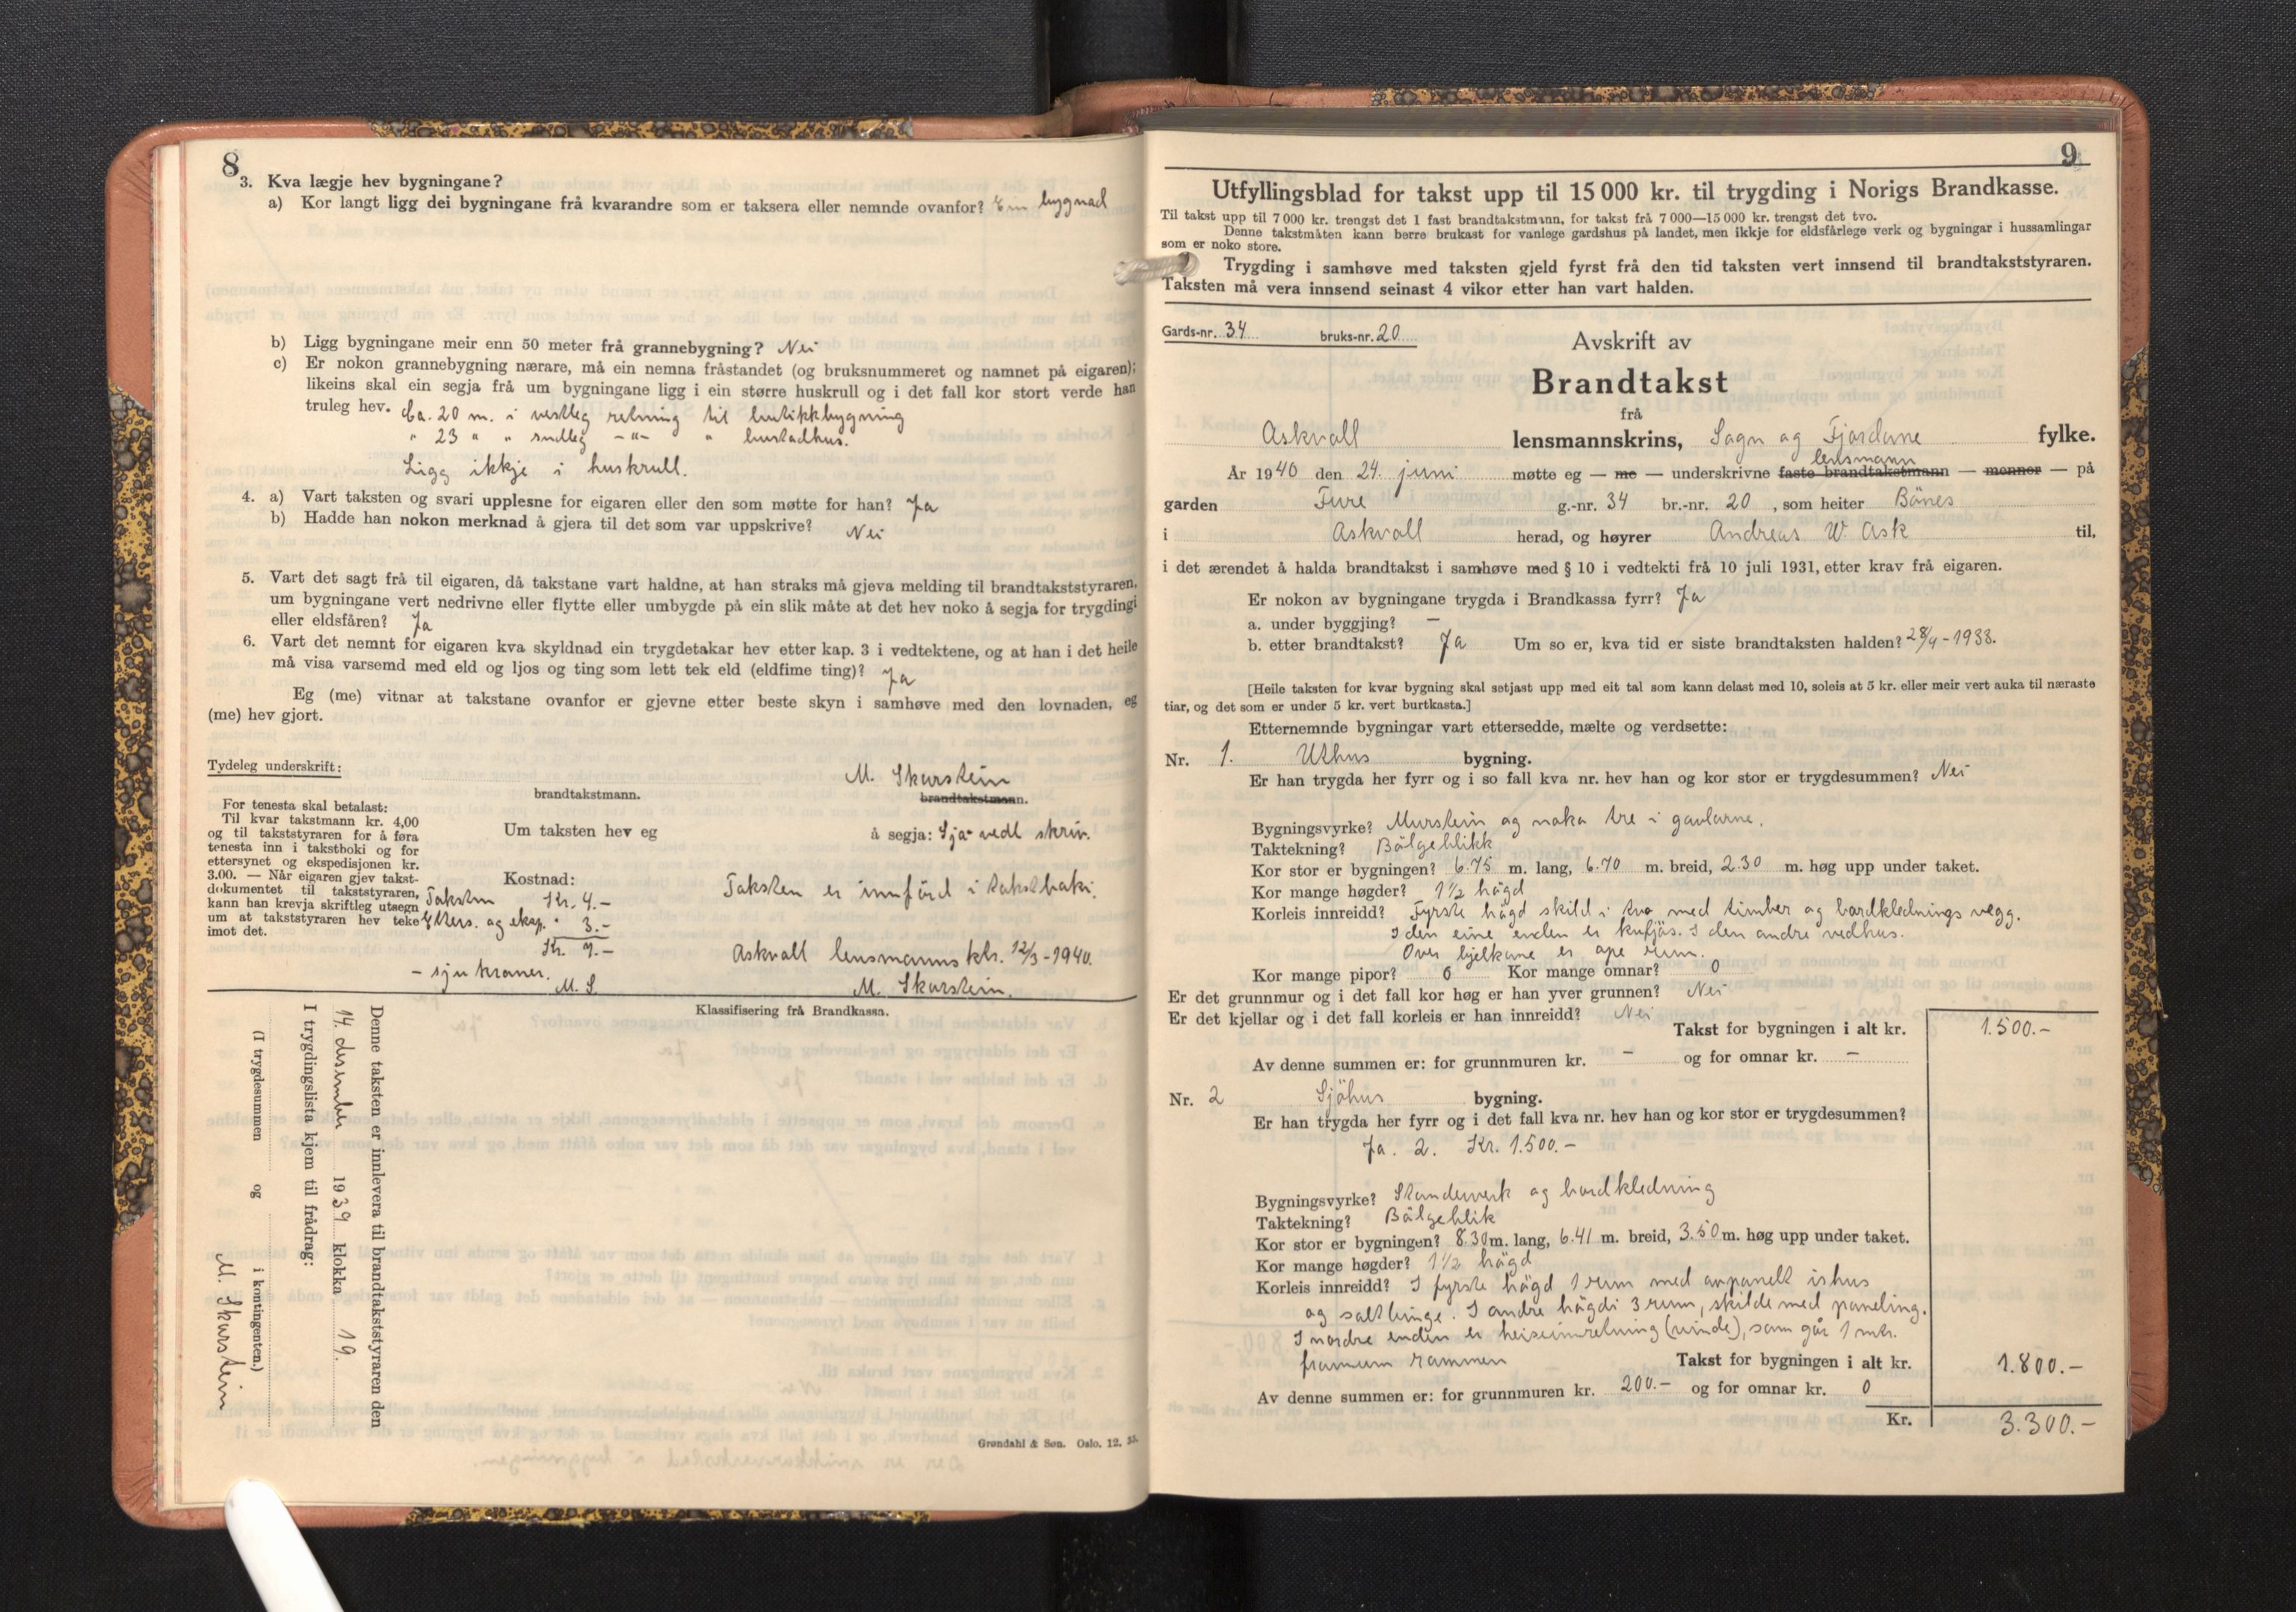 8
3. Kva lægje hev bygningane?
a) Kor langt ligg dei bygningane frå kvarandre som er taksera eller nemnde ovanfor? Ein bygnad
b) Ligg bygningane meir enn 50 meter frå grannebygning? Nei
c) Er nokon grannebygning nærare, må ein nemna fråstandet (og bruksnummeret og namnet på eigaren);
likeins skal ein segja frå um bygningane ligg i ein større huskrull og i det fall kor stort verde han
truleg hev. Ca. 20 m. i vestleg retning til butikkbygning
" 23 " " sudleg -"- " bustadhus.
Ligg ikkje i huskrull.
4. a) Vart taksten og svari upplesne for eigaren eller den som møtte for han? Ja
b) Hadde han nokon merknad å gjera til det som var uppskrive? Nei
5. Vart det sagt frå til eigaren, då takstane vart haldne, at han straks må gjeva melding til brandtakststyraren,
um bygningane vert nedrivne eller flytte eller umbygde på ein slik måte at det hev noko å segja for trygdingi
eller eldsfåren? Ja
6. Vart det nemnt for eigaren kva skyldnad ein trygdetakar hev etter kap. 3 i vedtektene, og at han i det heile
må visa varsemd med eld og ljos og ting som lett tek eld (eldfime ting)? Ja
Eg (me) vitnar at takstane ovanfor er gjevne etter beste skyn i samhøve med den lovnaden, eg
(me) hev gjort.
Tydeleg underskrift:
M. Skarstein
brandtakstmann. brandtakstmann.
For tenesta skal betalast:
Til kvar takstmann kr. 4,00
og til takststyraren for å føra
tenesta inn i takstboki og for
ettersynet og ekspedisjonen kr.
3.00. — Når eigaren gjev takst-
dokumentet til takststyraren,
kann han krevja skriftleg utsegn
um at takststyraren hev teke
imot det.
Um taksten hev eg å segja: Sjå vedl skriv.
Kostnad:
Taksten Kr. 4.-
Etters. og eksp. " 3.-
Kr. 7.-
- sju kroner.
M. S.
Taksten er innförd i takstboki.
Askvoll lensmannsktr. 12/3-1940.
M. Skarstein.
Klassifisering frå Brandkassa.
Denne taksten er innlevera til brandtakststyraren den
14. desember 1939 klokka 19.
I trygdingslista kjem til frådrag:
(I trygdesummen og i kontingenten.)
M. Skarstein
Grøndahl & Søn. Oslo. 12. 35.
9
Utfyllingsblad for takst upp til 15 000 kr. til trygding i Norigs Brandkasse.
Til takst upp til 7 000 kr. trengst det 1 fast brandtakstmann, for takst frå 7 000—15 000 kr. trengst det tvo.
Denne takstmåten kann berre brukast for vanlege gardshus på landet, men ikkje for eldsfårlege verk og bygningar i hussamlingar
som er noko store.
Trygding i samhøve med taksten gjeld fyrst frå den tid taksten vert innsend til brandtakststyraren.
Taksten må vera innsend seinast 4 vikor etter han vart halden.
Gards-nr. 34 bruks-nr. 20
Avskrift av
Brandtakst
frå
Askvoll lensmannskrins, Sogn og Fjordane fylke.
lensmann
År 1940 den 24. juni møtte eg — me — underskrivne faste brandtakstmann — menner — på
garden Fure g.-nr. 34 br.-nr. 20, som heiter Bänes
i Askvoll herad, og høyrer Andreas W. Ask til,
i det ærendet å halda brandtakst i samhøve med § 10 i vedtekti frå 10 juli 1931, etter krav frå eigaren.
Er nokon av bygningane trygda i Brandkassa fyrr? Ja
a. under byggjing? —
b. etter brandtakst? Ja Um so er, kva tid er siste brandtaksten halden? 28/4-1933.
[Heile taksten for kvar bygning skal setjast upp med eit tal som kann delast med 10, soleis at 5 kr. eller meir vert auka til næraste
tiar, og det som er under 5 kr. vert burtkasta.]
Etternemnde bygningar vart ettersedde, mælte og verdsette:
Nr. 1. Uthus bygning.
Er han trygda her fyrr og i so fall kva nr. hev han og kor stor er trygdesummen? Nei
Bygningsvyrke? Murstein og noko tre i gavlarne.
Taktekning? Bölgeblikk
Kor stor er bygningen? 6.75 m. lang, 6.70 m. breid, 2.30 m. høg upp under taket.
Kor mange høgder? 1 1/2 högd
Korleis innreidd? Fyrste högd skild i tvo med timber og bordklednings vegg.
I den eine enden er kufjös. I den andre vedhus.
Over bjelkane er ope rum.
Kor mange pipor? 0 Kor mange omnar? 0
Er det grunnmur og i det fall kor høg er han yver grunnen? Nei
Er det kjellar og i det fall korleis er han innreidd? Nei
Takst for bygningen i alt kr. 1.500.-
Av denne summen er: for grunnmuren kr. — og for omnar kr. —
Nr. 2 Sjöhus bygning.
Er han trygda her fyrr og i det fall kva nr. hev han og kor stor er trygdesummen?
Ja. 2. Kr. 1.500.-
Bygningsvyrke? Standerverk og bordkledning
Taktekning? Bölgeblik
Kor stor er bygningen? 8.30 m. lang, 6.41 m. breid, 3.50 m. høg upp under taket.
Kor mange høgder? 1 1/2 högd
Korleis innreidd? I fyrste högd 1 rum med avpanelt ishus
og saltbinge. I andre högdi 3 rum, skilde med paneling.
I nordre enden er heiseinretning (vinde), som går 1 mtr.
framum rammen
Takst for bygningen i alt kr. 1.800.-
Av denne summen er: for grunnmuren kr. 200.- og for omnar kr. 0
Kr. 3.300.-